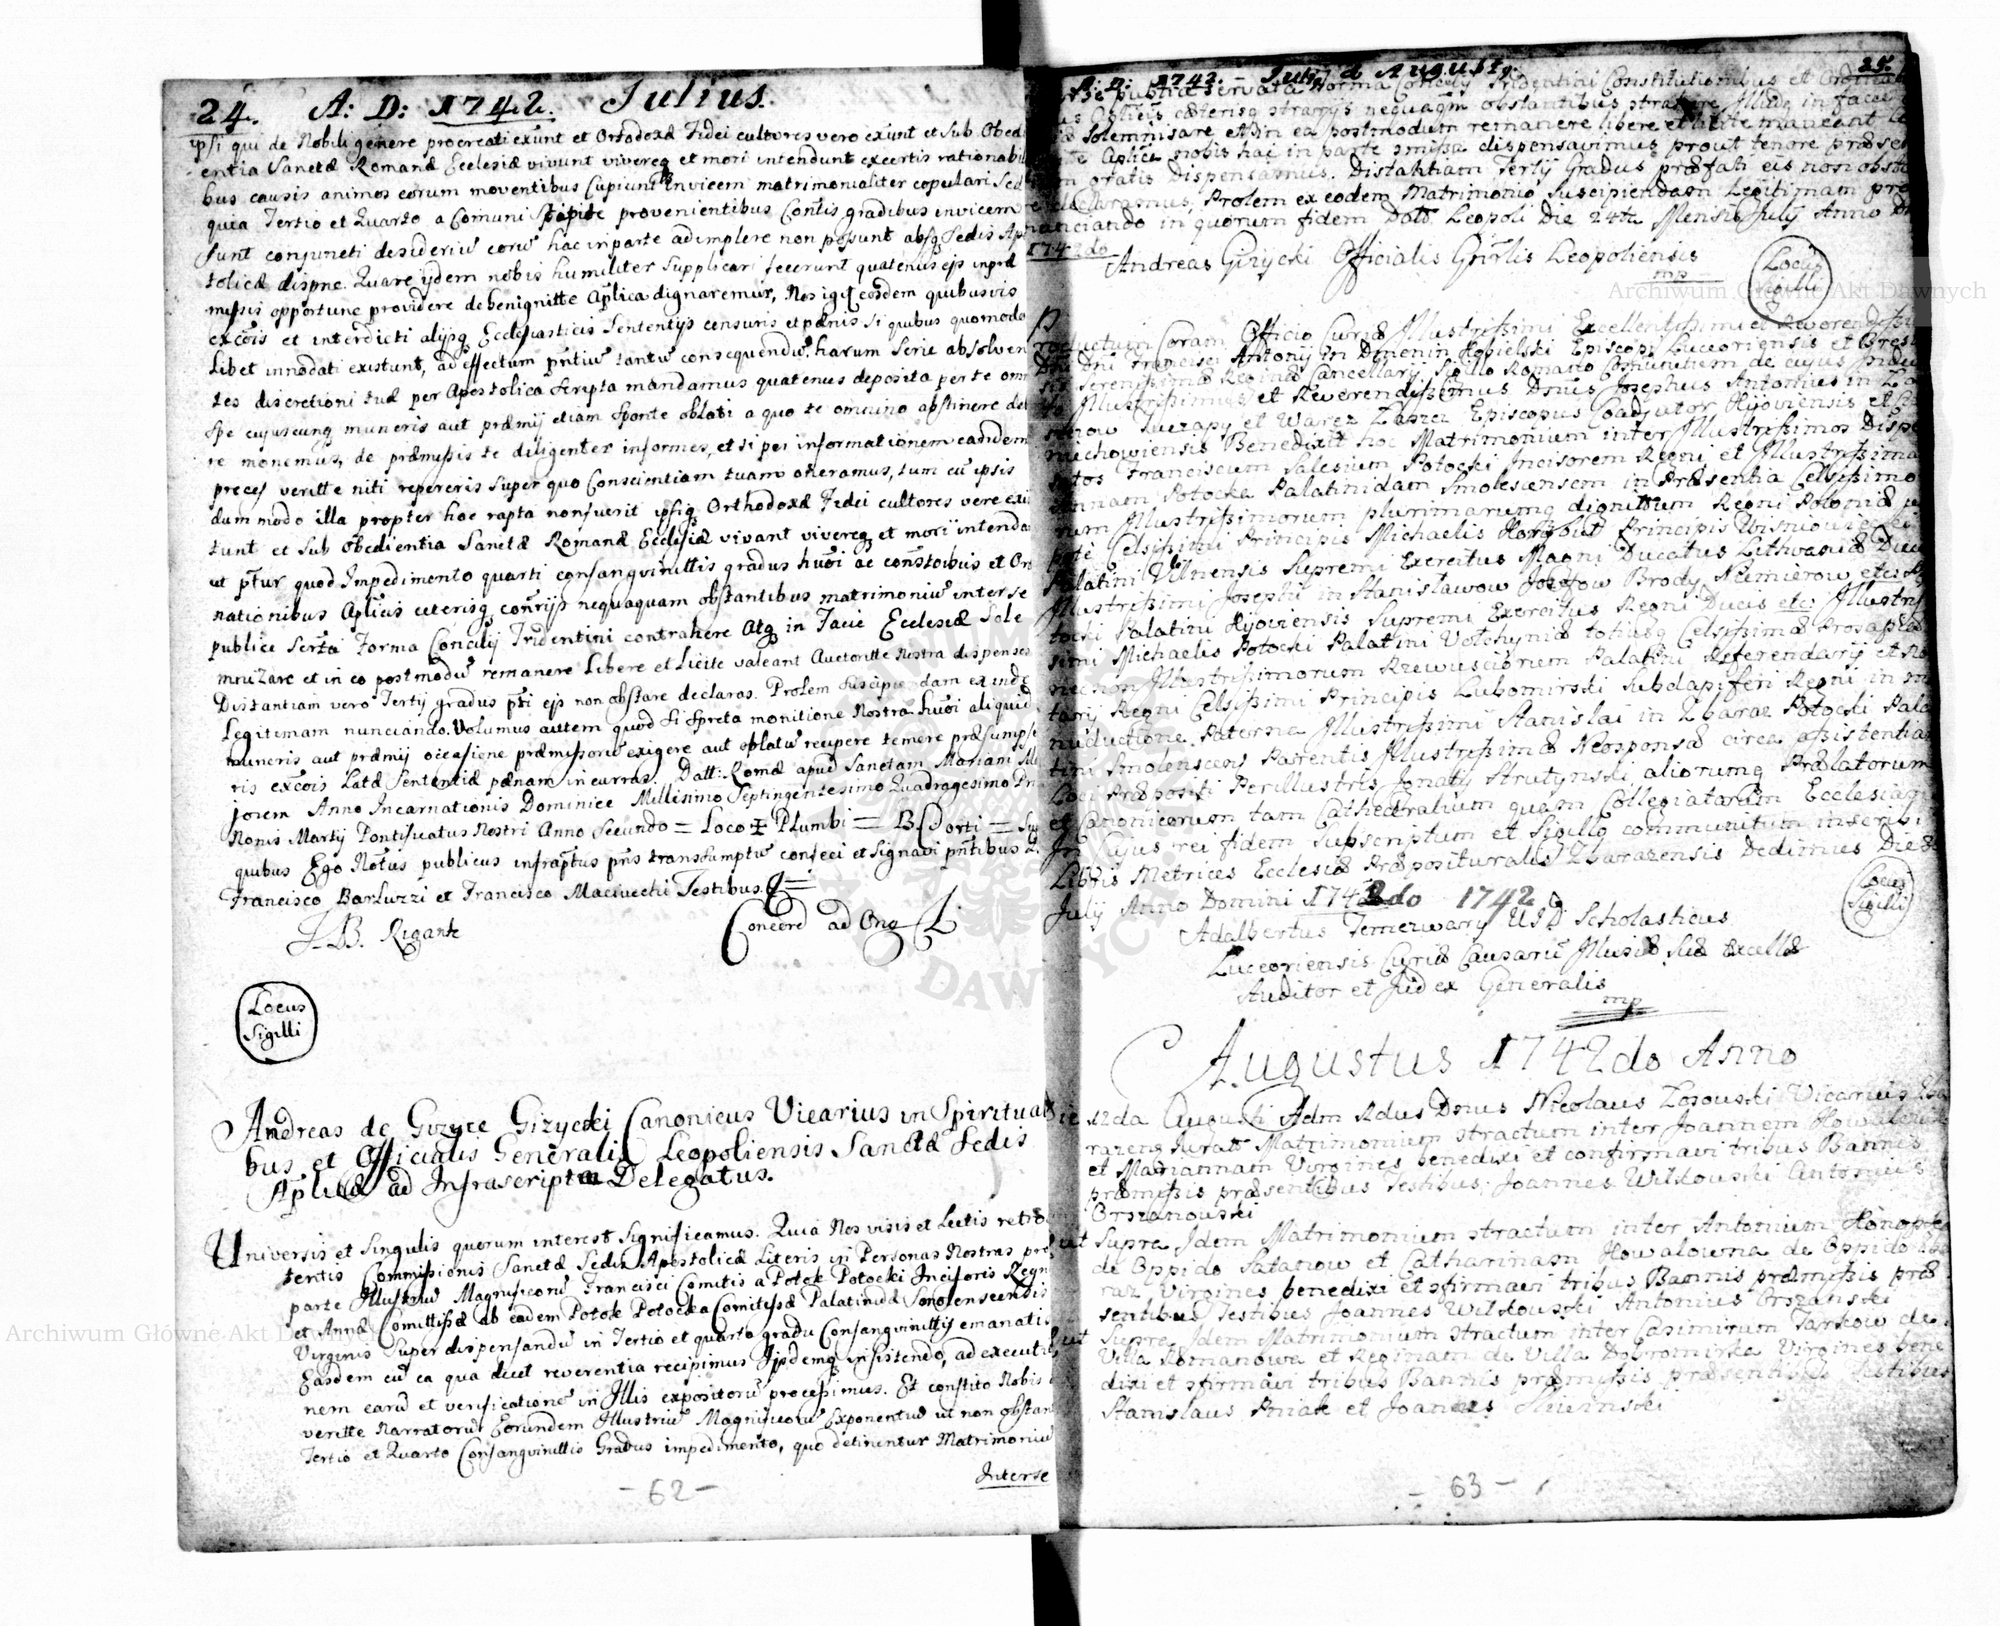 24. A: D: 1742. Julius.
ipsi qui de Nobili genere procreati existunt et Ortodoxæ Fidei cultores vero existunt et Sub Obedi
entia Sanctæ Romanæ Ecclesiæ vivunt vivereq et mori intendunt excertis rationabili
bus causis animos eorum moventibus Cupiunt invicem matrimonialiter copulari Sed
quia Tertio et Quarto a Comuni Stipite provenientibus gradibus invicem
sunt conjuncti desideriū eorū hac in parte adimplere non possunt absq Sedis Apo
stolicæ dispne. Quare ijdem nobis humiliter Supplicari fecerunt quatenus ejs in præ
missis opportune providere de benignitte Aplica dignaremur, Nos igit eosdem quibusvis
excois et interdicti alijsq Ecclesiasticis Sententijs censuris et pænis si quibus quomodo
Libet innodati existunt, ad effectum pntiū tantū consequendū harum Serie absolven
tes discretioni tuæ per Apostolica Scripta mandamus quatenus deposita per te omni
Spe cujuscunq muneris aut præmij etiam Sponte oblati a quo te omnino abstinere debe
re monemus, de præmissis te diligenter informes, et si per informationem eandem
preces veritte niti repereris Super quo Conscientiam tuam oneramus, tum cū ipsis
dum modo illa propter hoc rapta non fuerit ipsiq Orthodoxæ Fidei cultores vere exi
stunt et Sub Obedientia Sanctæ Romanæ Ecclesiæ vivant vivereq et mori intenda
ut ptur quod Impedimento quarti consangvinittis gradus huōi ac constoibus et Ordi
nationibus Aplicis ceterisq conrijs nequaquam obstantibus matrimoniū inter se
publice Serta Forma Concilij Tridentini contrahere Atq in Facie Ecclesiæ Sole
mnizare et in eo postmodū remanere Libere et Licite valeant Auctoritte Nostra dispenses
Distantiam vero Tertij gradus pti ejs non obstare declaras. Prolem suscipiendam exinde
Legitimam nunciando. Volumus autem quod Si spreta monitione Nostra huōi aliquid
muneris aut præmij occasione præmissorū exigere aut oblatū recipere temere præsumpse
ris excois Latæ Sententiæ pænam incurras. Datt: Romæ apud Sanctam Mariam Ma
jorem Anno Incarnationis Dominice Millesimo Septingentesimo Quadragesimo Pri
Nonis Martij Pontificatus Nostri Anno Secundo = Loco ‡ Plumbi = B. Dorti =
quibus Ego Notus publicus infraptus pns transumptū confeci et Signavi pntibus D.
Francisco Barluzzi et Francisco Maciucchi Testibus.
J. B. Rigante
Concord ad Org
Locus
Sigilli
Andreas de Gizyce Gizycki Canonicus Vicarius in Spirituali
bus et Officialis Generalis Leopoliensis Sanctæ Sedis
Aplicæ ad Infrascripta Delegatus.
Universis et Singulis quorum interest Significamus. Quia Nos visis et Lectis retro
tentis Commissionis Sanctæ Sedis Apostolicæ Literis in Personas Nostras pro
parte Illustriū Magnificorū Francisci Comitis a Potok Potocki Incisoris Regni
et Annæ Comitissæ ab eadem Potok Potocka Comitissæ Palatinidæ Smolenscensis
Virginis Super dispensandū in Tertio et quarto gradu Consangvinittis emanatis
Easdem cū ea qua decet reverentia recipimus Ijsdemq insistendo, ad executio
nem earū et verificationē in Illis expositorū processimus. Et constito Nobis
veritte Narratorū Eorundem Illustriū Magnificorū Exponentiū ut non obstan
Tertio et Quarto Consangvinittis Gradus impedimento, quo detinentur Matrimoniū
Interse
- 62 -
A: D: 1742. - Julij & Augusti. 25.
publice servata Norma Concilij Tridentini Constitutionibus et Ordinat
Aplicis cæterisq strarijs nequaqm obstantibus strahere Illudq in facie
solemnisare et in ea postmodum remanere libere et licite maneant
Aplica nobis hac in parte smissa dispensavimus prout tenore præsen
gratis Dispensamus. Distantiam Tertij Gradus præfati eis non obsta
declaramus, Prolem ex eodem Matrimonio Suscipiendam Legitimam pro
nunciando in quorum fidem Datt Leopoli Die 24ta Mensis July Anno D
1742do
Andreas Gizycki Officialis Gnrlis Leopoliensis
mp
Locus
Sigilli
Productum Coram Officio Curiæ Illustrissimi Excellentissimi et Reverendissi
Dni Dni Francisci Antonij in Dmenin Kobielski Episcopi Luceoriensis et Brest
Serenissimæ Reginæ Cancellarij Sigillo Romano Comunitum de cujus
Illustrissimus et Reverendissimus Dnus Josephus Antonius in
Suczapy et Warez Łaszcz Episcopus Coadjutor Kijoviensis et
nuchowiensis Benedixit hoc Matrimonium inter Illustrissimos Dispo
Franciscum Salesium Potocki Incisorem Regni et Illustrissima
Annam Potocka Palatinidam Smolescensem in Præsentia Celsissimo
rum Illustrissimorum plurimarumq dignittum Regni Poloniæ
Celsissimi Principis Michaelis Korybut Principis Wisniowiec
Palatini Vilnensis Supremi Exercitus Magni Ducatus Lithvaniæ Ducis
Illustrissimi Josephi in Stanisławow Jozefow Brody Niemierow etc:
tocki Palatini Kijoviensis Supremi Exercitus Regni Ducis etc: Illustris
simi Michaelis Potocki Palatini Vołchyniæ totiusq Celsissimæ Prosapiæ
necnon Illustrissimorum Rzewusciorum Palatini, Referendarij et No
tarij Regni Celsissimi Principis Lubomirski Subdapiferi Regni in
nuductione Paterna Illustrissimi Stanislai in Zbaraz Potocki Pala
tini Smolenscens Parentis Illustrissimæ Neosponsæ circa assistentiam
Loci Præpositi Perillustris Ignatij Strutynski aliorumq Prælatorum
et Canonicorum tam Cathedralium quam Collegiatarum Ecclesiar
In Cujus rei fidem Subscriptum et Sigillo communitum inscribi
Libris Metrices Ecclesiæ Præposituralis Zbarazensis Dedimus Die
July Anno Domini 1742do 1742
Locus
Sigilli
Adalbertus Temerwary USD Scholasticus
Luceoriensis Curiæ Causarū Illusiæ Suæ Excellæ
Auditor et Judex Generalis
mp
Augustus 1742do Anno
Die 12da Augusti Adm Rdus Dnus Nicolaus Zosowski Vicarius Zba
razens Jurato Matrimonium stractum inter Joannem Kowalewski
et Mariannam Virgines benedixi et confirmavi tribus Bannis
præmissis præsentibus Testibus, Joannes Wilkowski Antonius
Orszanowski
ut Supra Idem Matrimonium stractum inter Antonium Konopka
de Oppido Satanow et Catharinam Kowalowna de Oppido Zba
raz, Virgines benedixi et sfirmavi tribus Bannis præmissis præ
sentibus Testibus Joannes Wilkowski Antonius Orszanski
ut Supra Idem Matrimonium stractum inter Casimirum Tarkow de
Villa Romanowa et Reginam de Villa Dobromirka Virgines bene
dixi et sfirmavi tribus Bannis præmissis præsentibus Testibus
Stanislaus Pniak et Joannes Sliwinski
- 63 -
Archiwum Główne Akt Dawnych
Archiwum Główne Akt Dawnych